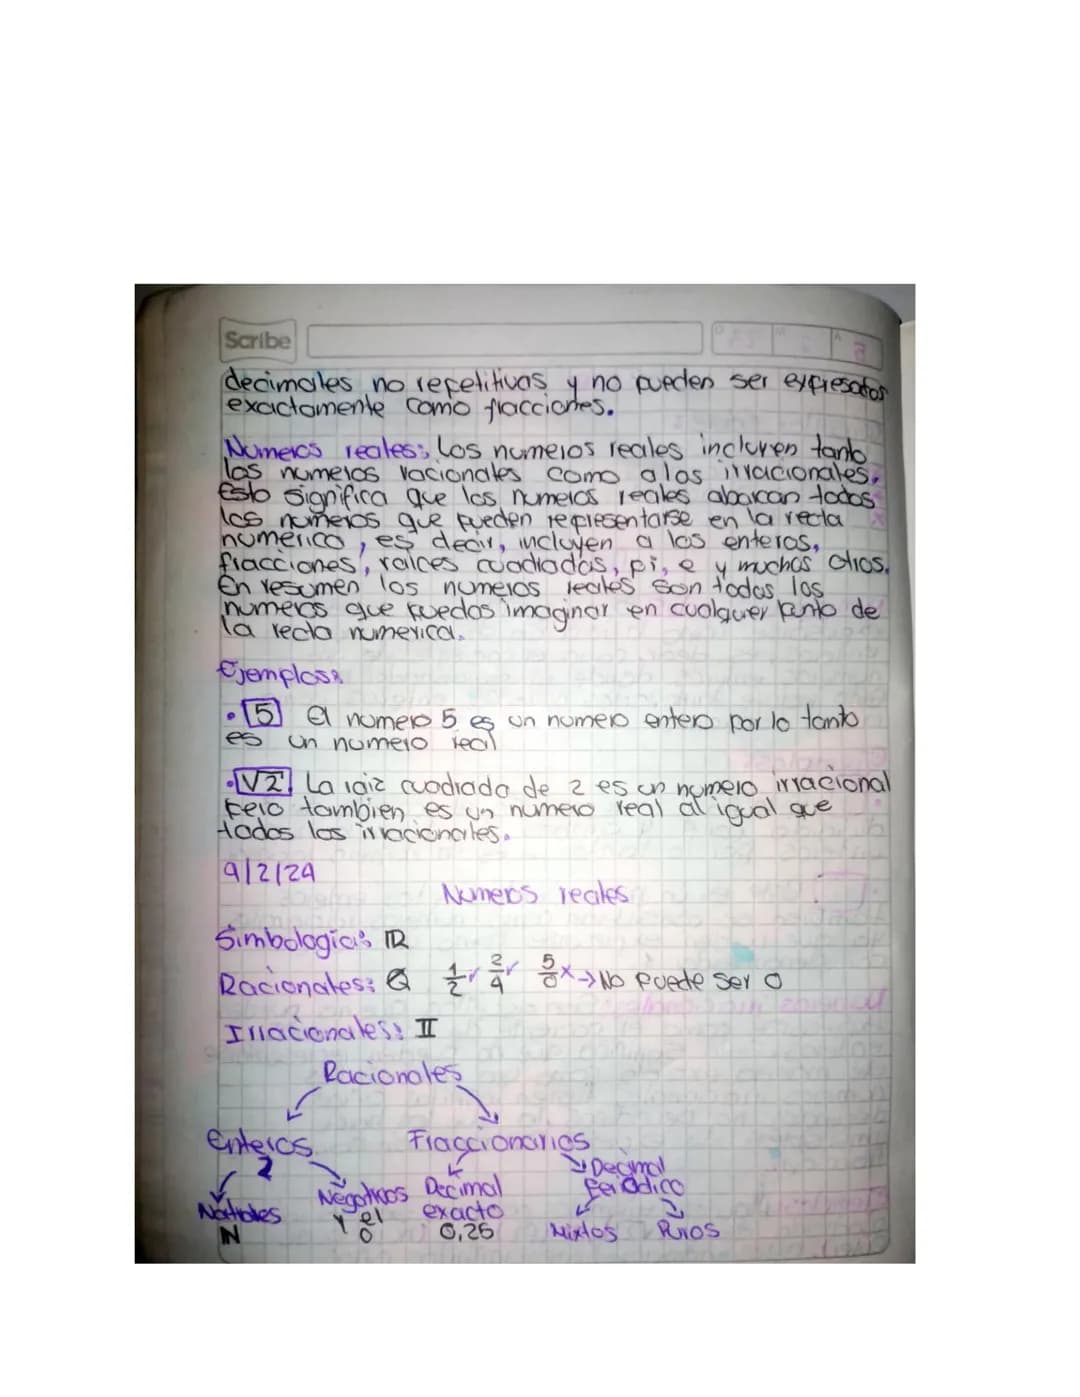 Scribe
decimales no repetitivas y no pueden ser expresados
exactamente como fracciones.
Numeros reales: Los numeros reales incluyen tanto
los numeros racionales como a los irracionales.
Esto significa que los numeros reales abarcan todos
los numeros que pueden representarse en la recta
numerica, es decir, incluyen a los enteros,
fracciones, raíces cuadradas, pi, e y muchos otros.
En resumen los numeros reales son todos los
numeros que puedas imaginar en cualquier punto de
la recta numerica.
Ejemplos:
• 5 El numero 5 es un numero entero por lo tanto
es un numero real
• √2 La raiz cuadrada de 2 es un numero irracional
pero tambien es un numero real al igual que
todos los irracionales.
9/2/24
Numeros reales
Simbologia: ℝ
Racionales: Q 1/2 ✓ 2/4 ✓ 5/0 x → No puede ser 0
Irracionales: II
Racionales
Enteros Fraccionarios
Z Decimal
periodico
Naturales Negativos Decimal
N y el exacto Mixtos Puros
0 0,25